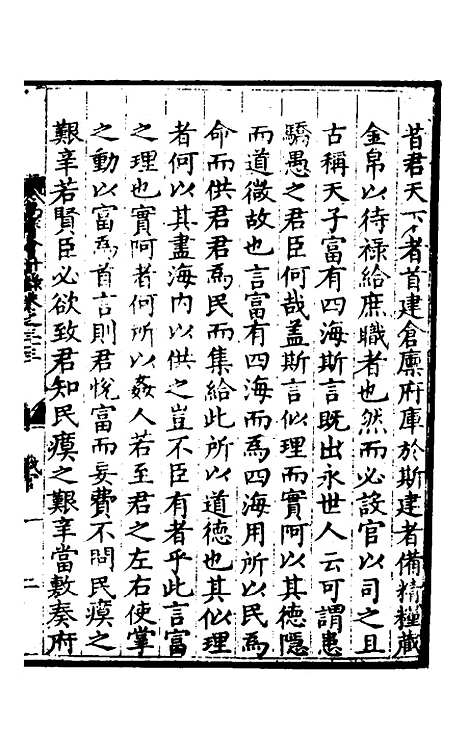 昔君天下者首建倉廩府庫於斯建者備精糧藏
金帛以待祿給庶職者也然而必設官以司之且
古稱天子富有四海斯言既出永世人云可謂愚
驕愚之君臣何哉盖斯言似理而實阿以其德隱
而道微故也言富有四海而為四海用所以民為
命而供君君為民而集給此所以道德也其似理
者何以其盡海内以供之豈不臣有者乎此言富
之理也實阿者何所以姦人若至君之左右使掌
之動以富為首言則君悅富而妄費不問民瘼之
艱辛若賢臣必欲致君知民瘼之艱辛當敷奏府